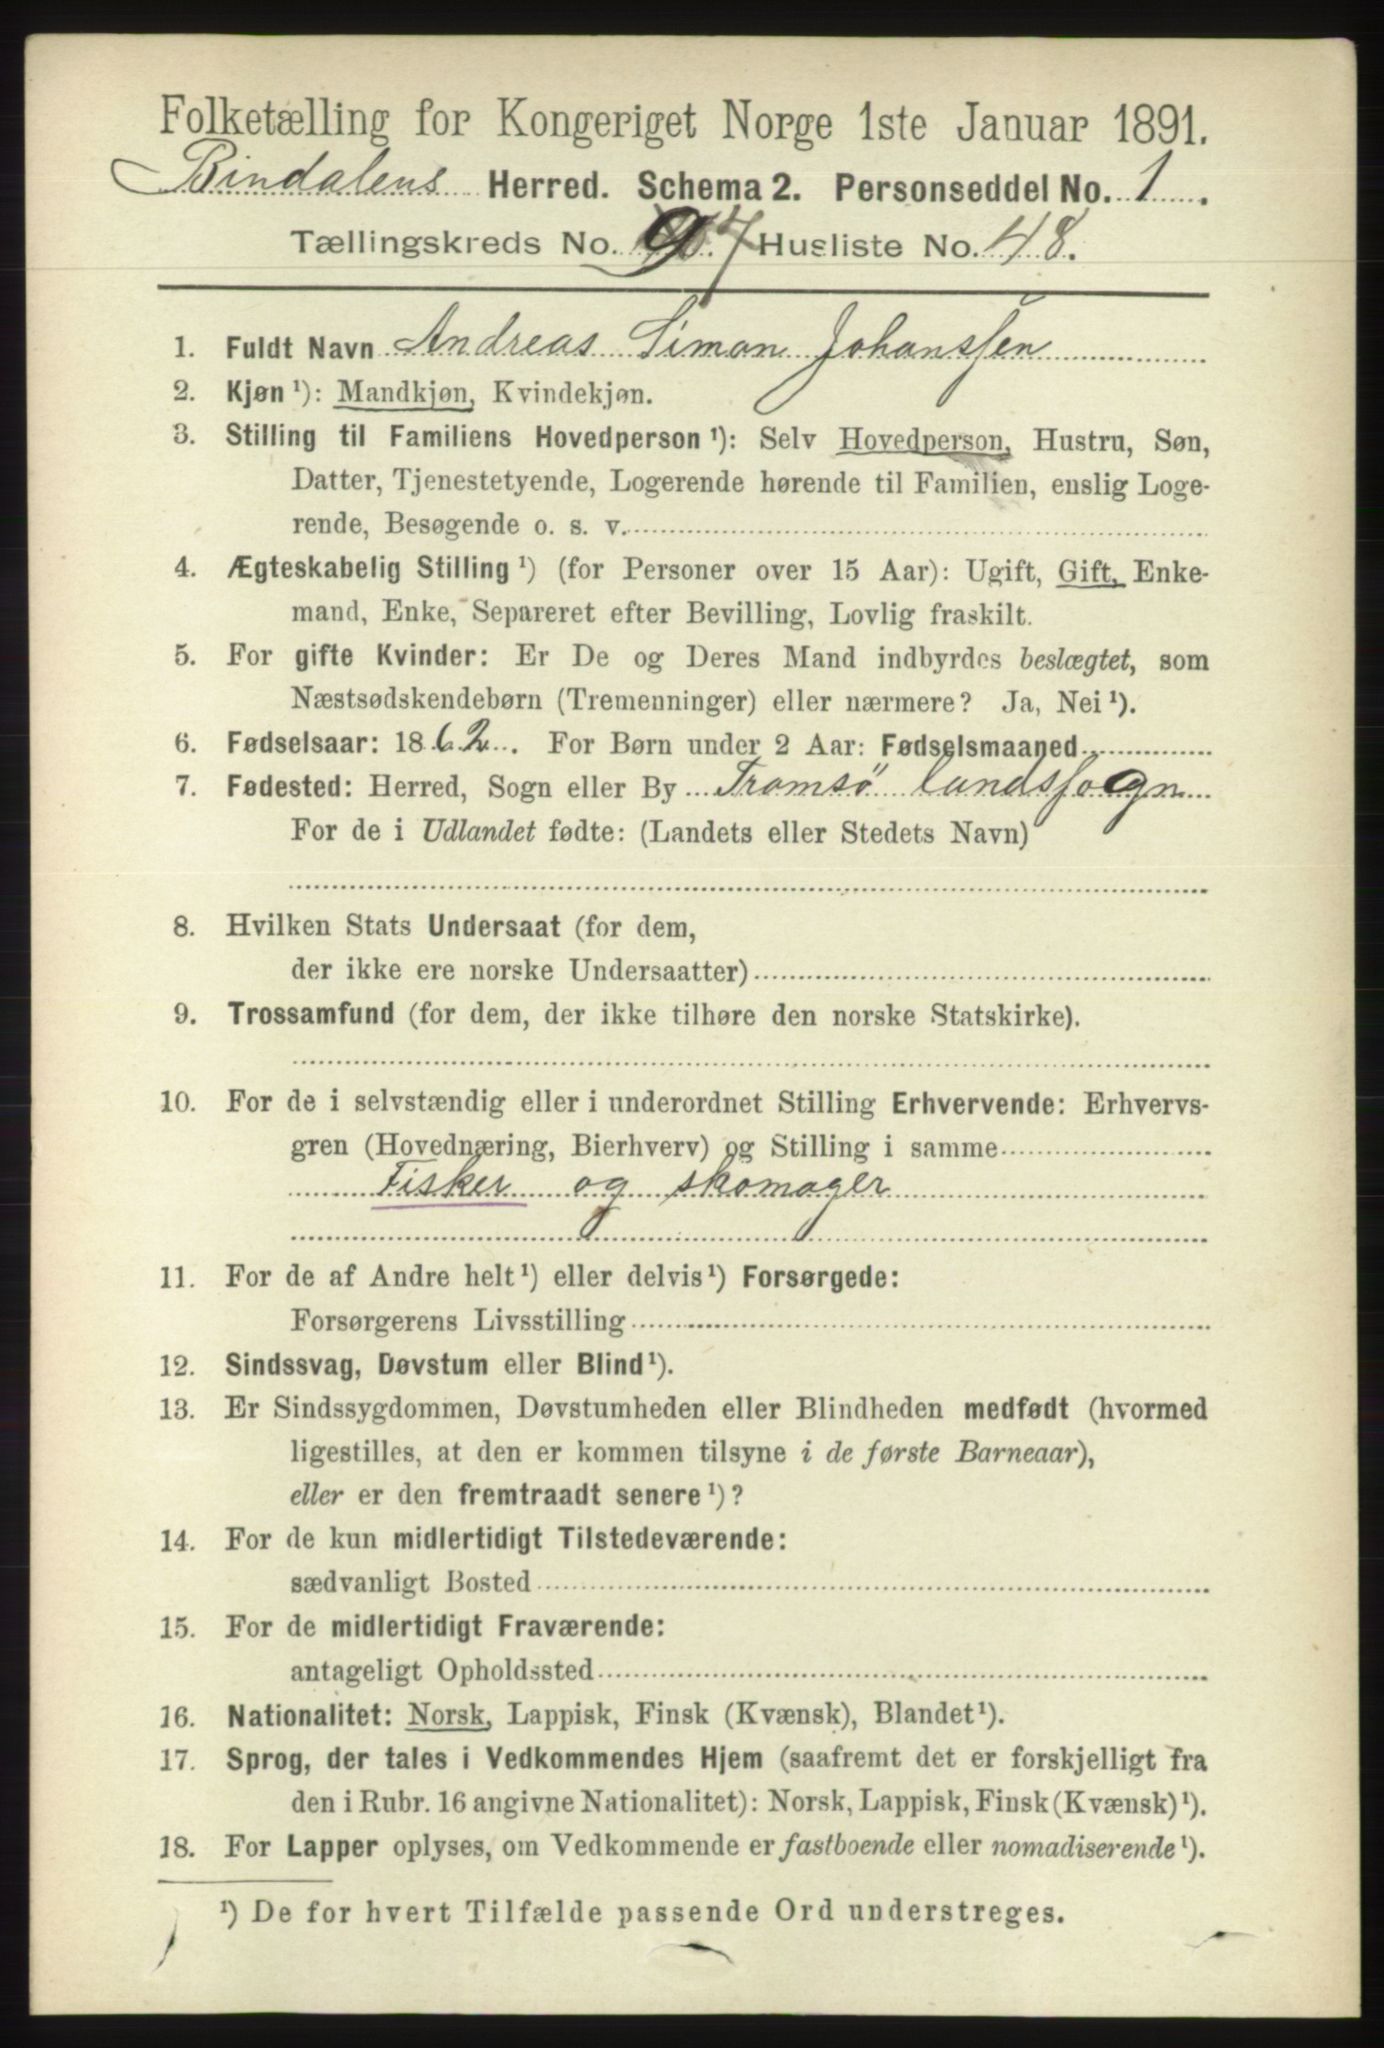 Folketælling for Kongeriget Norge 1ste Januar 1891.
Bindalens Herred. Schema 2. Personseddel No. 1.
Tællingskreds No. 9 Husliste No. 48.
1. Fuldt Navn Andreas Simon Johanssen
2. Kjøn ¹): Mandkjøn, Kvindekjøn.
3. Stilling til Familiens Hovedperson ¹): Selv Hovedperson, Hustru, Søn,
Datter, Tjenestetyende, Logerende hørende til Familien, enslig Loge-
rende, Besøgende o. s. v.
4. Ægteskabelig Stilling ¹) (for Personer over 15 Aar): Ugift, Gift, Enke-
mand, Enke, Separeret efter Bevilling, Lovlig fraskilt.
5. For gifte Kvinder: Er De og Deres Mand indbyrdes beslægtet, som
Næstsødskendebørn (Tremenninger) eller nærmere? Ja, Nei ¹).
6. Fødselsaar: 1862. For Børn under 2 Aar: Fødselsmaaned
7. Fødested: Herred, Sogn eller By Tromsö landssogn
For de i Udlandet fødte: (Landets eller Stedets Navn)
8. Hvilken Stats Undersaat (for dem,
der ikke ere norske Undersaatter)
9. Trossamfund (for dem, der ikke tilhøre den norske Statskirke).
10. For de i selvstændig eller i underordnet Stilling Erhvervende: Erhvervs-
gren (Hovednæring, Bierhverv) og Stilling i samme
Fisker og skomager
11. For de af Andre helt ¹) eller delvis ¹) Forsørgede:
Forsørgerens Livsstilling
12. Sindssvag, Døvstum eller Blind ¹).
13. Er Sindssygdommen, Døvstumheden eller Blindheden medfødt (hvormed
ligestilles, at den er kommen tilsyne i de første Barneaar),
eller er den fremtraadt senere ¹)?
14. For de kun midlertidigt Tilstedeværende:
sædvanligt Bosted
15. For de midlertidigt Fraværende:
antageligt Opholdssted
16. Nationalitet: Norsk, Lappisk, Finsk (Kvænsk), Blandet ¹).
17. Sprog, der tales i Vedkommendes Hjem (saafremt det er forskjelligt fra
den i Rubr. 16 angivne Nationalitet): Norsk, Lappisk, Finsk (Kvænsk) ¹).
18. For Lapper oplyses, om Vedkommende er fastboende eller nomadiserende ¹).
¹) De for hvert Tilfælde passende Ord understreges.